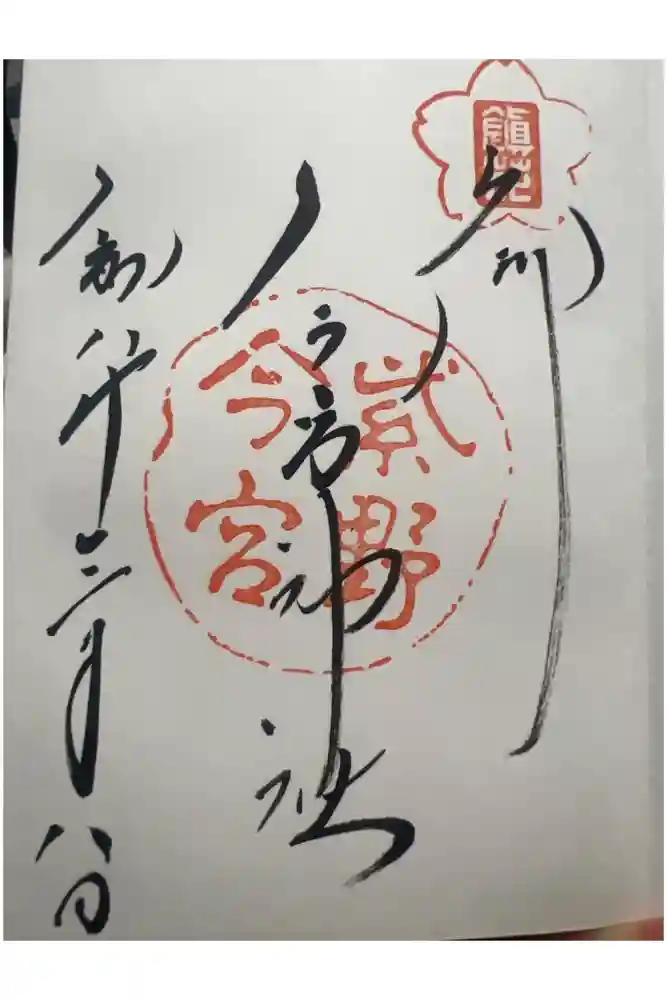 鎮花
今宮神社
紫野
今宮
令和八年三月八日